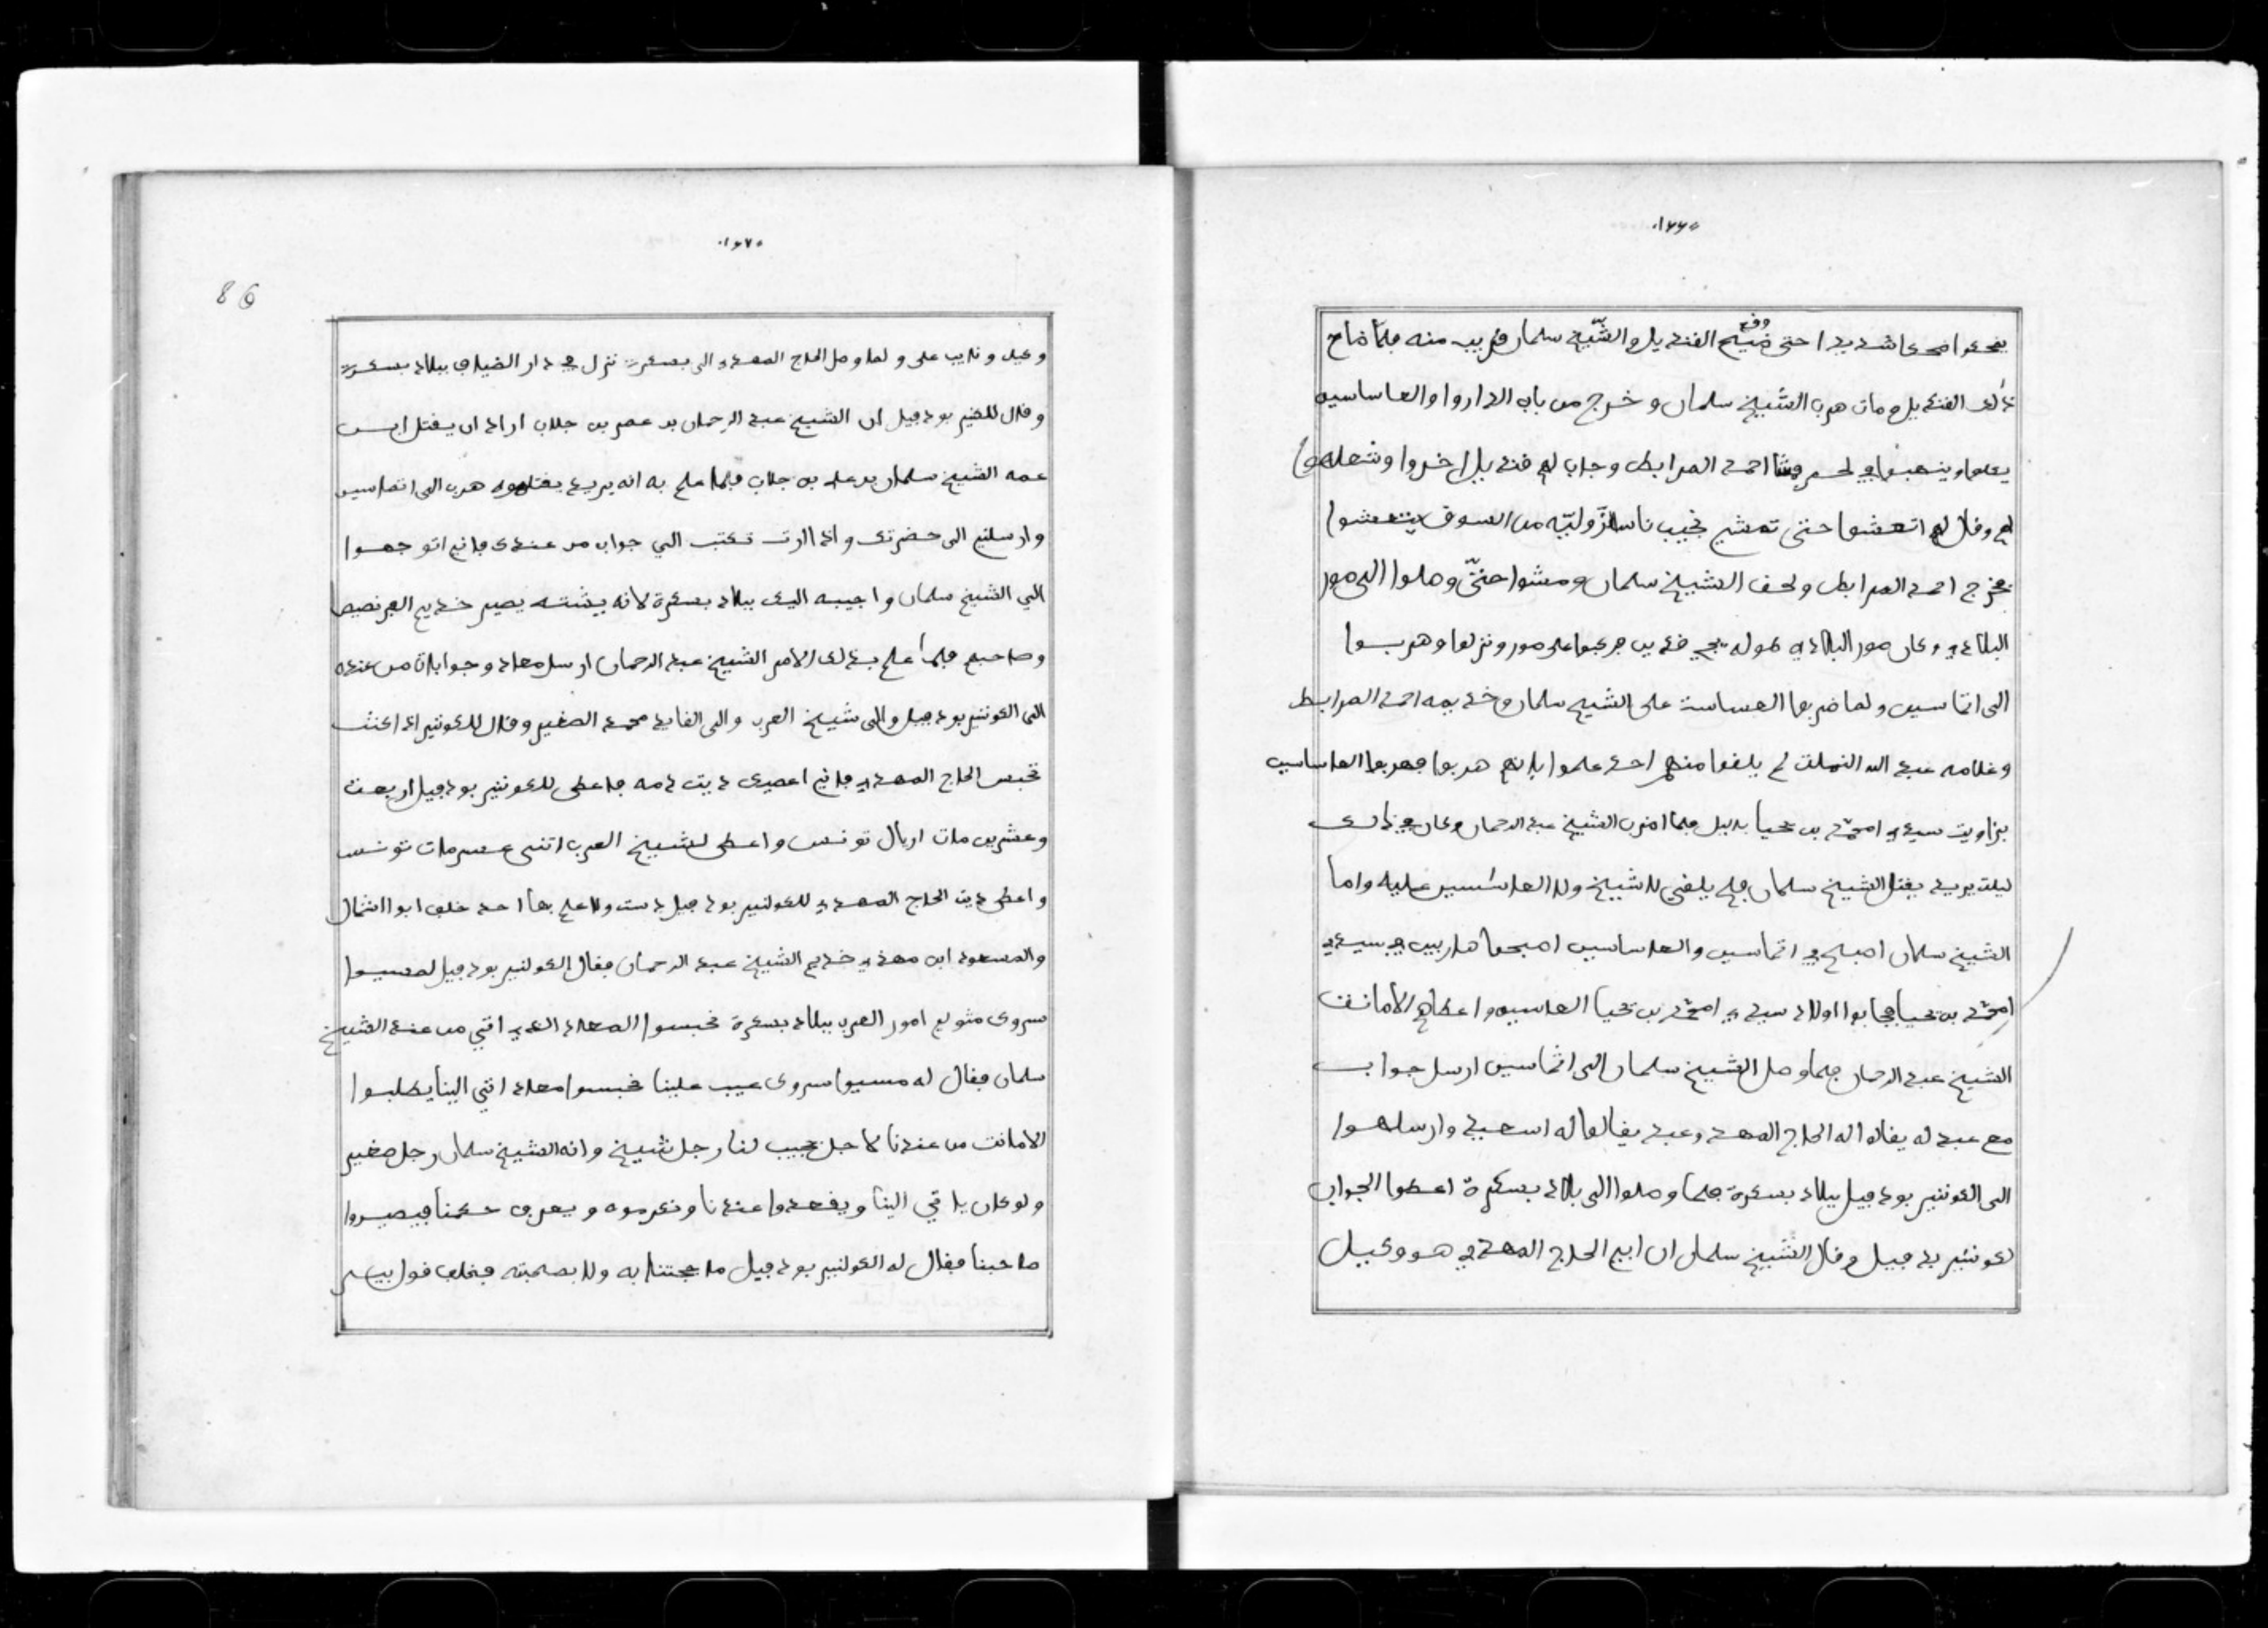 .١٦٦٠
يضحكوا ضحكا شديدا حتى وقع ضيح الفنديل والشّيخ سلمان فريب منه فلما ضاح
ذالك الفنديل ومات هرب الشيخ سلمان وخرج من باب الداروا والعساسيه
احمد المرابط وجاب لهم فنديل اخروا وشعله
لهم وفال لهم اتعشوا حتى تمشي نجيب ناس من السوف يتعشوا
فخرج احمد المرابط ولحف الشيخ سلمان ومشوا حتّى وصلوا الى سور
البلاد وكان سور البلاد طوله فدين سور ونزلوا وهربوا
الى اتماسين ولما ضربوا العساسة على الشيخ سلمان وخديمه احمد المرابط
وغلامه عبد الله لم يلفوا منهم احد علموا بانهم هربوا فهربوا العساسين
بزاويت سيدي امحمّد بن يحيا بليل فلما الشيخ عبد الرحمان وكان في ذالك
ليلت يريد يفتل الشيخ سلمان فلم يلفى لا شيخ ولا العساسين عليه واما
الشيخ سلمان اصبح في اتماسين والعساسين اصبحوا هاربين في سيدي
امحمّد بن يحيا فجابوا اولاد سيدي امحمّد بن يحيا العاسيه واعطاهم الامانت
الشيخ عبد الرحمان فلما وصل الشيخ سلمان الى اتماسين ارسل جواب
مع عبد له يفالوا له الحاج المهدي وعبد يفالوا له اسعيد وارسلهوا
الى الكونير بودفيل ببلاد بسكرة فلما وصلوا الى بلاد بسكرة اعطوا الجواب
لكونير بدفيل وفال الشيخ سلمان ان ابي الحاج المهدي هو وكيل
.١٦٧٠
86
وكيل ونايب على ولما وصل الحاج المهدي الى بسكرة نزل في دار الضياف ببلاد بسكرة
وفال للكنير بودفيل ان الشيخ عبد الرحمان بن عمر بن جلاب اراد ان يفتل ابن
عمه الشيخ سلمان بن علي بن جلاب فلما علم به انه يريد يفتلوه هرب الى اتماسين
وارسلني الى حضرتك واذا اردت تكتب الي جواب من عندك فاني اتوجهوا
الي الشيخ سلمان واجيبه اليك ببلاد بسكرة لانه يشته يصير خديم الفرنصيص
وصاحبهم فلما علم بذلك الامر الشيخ عبد الرحمان ارسل معاد وجوابات من عنده
الى الكونير بودفيل والى شيخ العرب والى الفايد محمد الصغير وفال للكونير اذا كنت
تحبس الحاج المهدي فاني اعطيك ديت دمه فاعطى للكونير بودفيل اربعت
وعشرين مات اريال تونس واعطى لشيخ العرب اتنى عسر مات تونس
واعطى ديت الحاج المهدي للكولنير بودفيل ولا علم بها احد خلف ابوا اشمال
والمسعود ابن مهدي خديم الشيخ عبد الرحمان ففال الكولنير بودفيل لمسيوا
سروك متولي امور العرب ببلاد بسكرة نحبسوا المعاد الذي اتي من عند الشيخ
سلمان ففال له مسيوا سروك عيب علينا نحبسوا معاد اتي الينا يطلبوا
الامانت من عندنا لاجل نجيب لنا رجل شيخ وانه الشيخ سلمان رجل صغير
ولو كان ياتي الينا ويفعدوا عندنا ونكرموه ويعرف حكمنا فيصيروا
صاحبنا ففال له الكولنير بودفيل ما حجتنا به ولا بصحبته فخلف فول بيسر